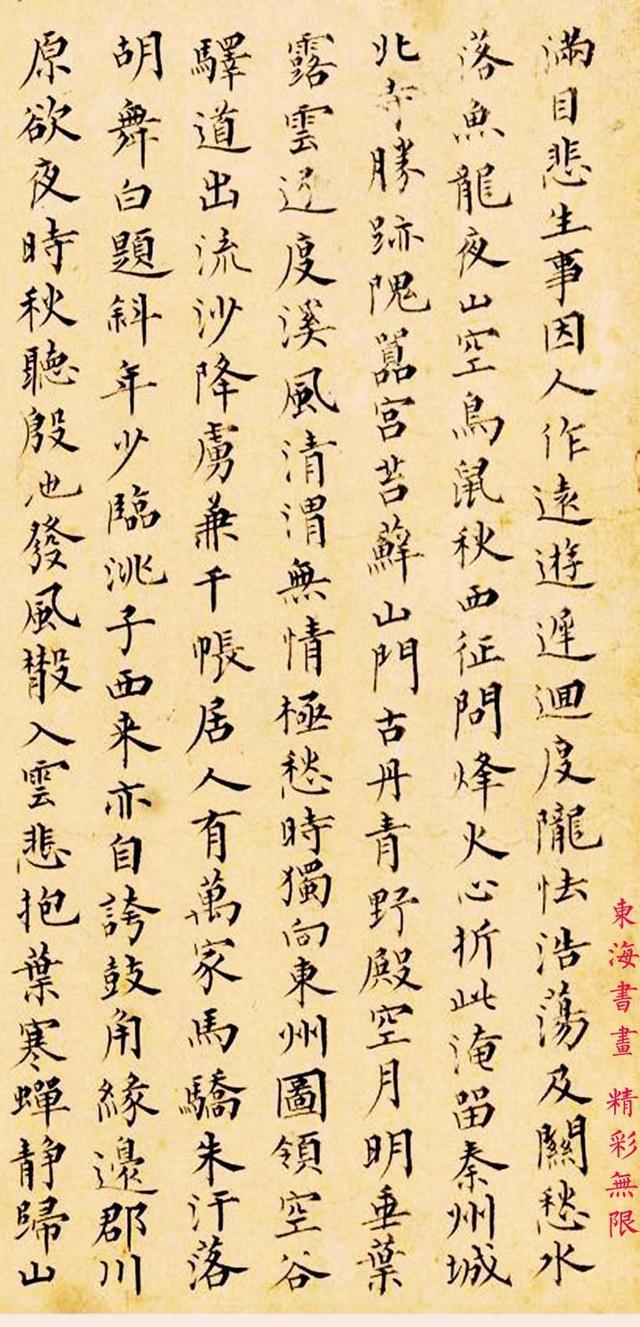 滿目悲生事因人作遠遊遲迴度隴怯浩蕩及關愁水
落魚龍夜山空鳥鼠秋西征問烽火心折此淹留秦州城
北寺勝跡隗囂宮苔蘚山門古丹青野殿空月明垂葉
露雲度溪風清渭無情極愁時獨向東州圖領空谷
驛道出流沙降虜兼千帳居人有萬家馬驕朱汗落
胡舞白題斜年少臨洮子西来亦自誇鼓角緣邊郡川
原欲夜時秋聽殷地發風散入雲悲抱葉寒蟬静歸山
東海書畫 精彩無限